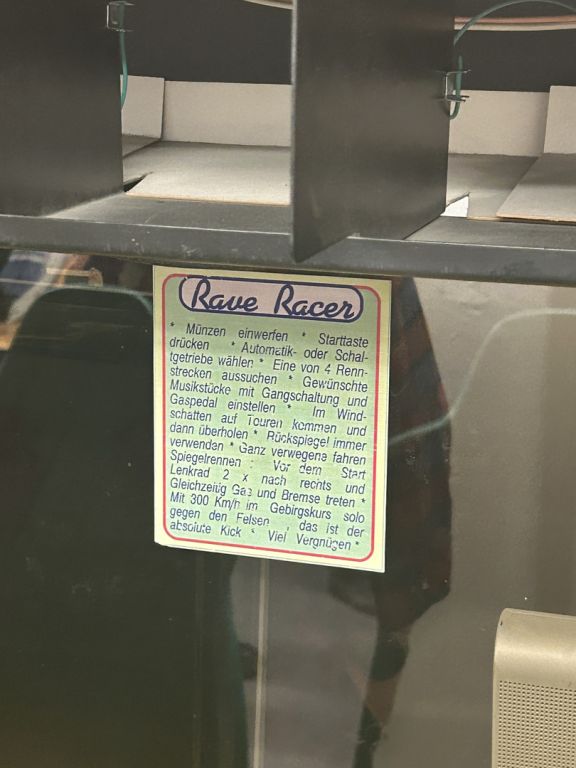 Rave Racer
* Münzen einwerfen * Starttaste
drücken * Automatik- oder Schal-
tgetriebe wählen * Eine von 4 Renn-
strecken aussuchen * Gewünschte
Musikstücke mit Gangschaltung und
Gaspedal einstellen * Im Wind-
schatten auf Touren kommen und
dann überholen * Rückspiegel immer
verwenden * Ganz verwegene fahren
Spiegelrennen : Vor dem Start
Lenkrad 2 x nach rechts und
Gleichzeitig Gas und Bremse treten *
Mit 300 Km/h im Gebirgskurs solo
gegen den Felsen , das ist der
absolute Kick * Viel Vergnügen *